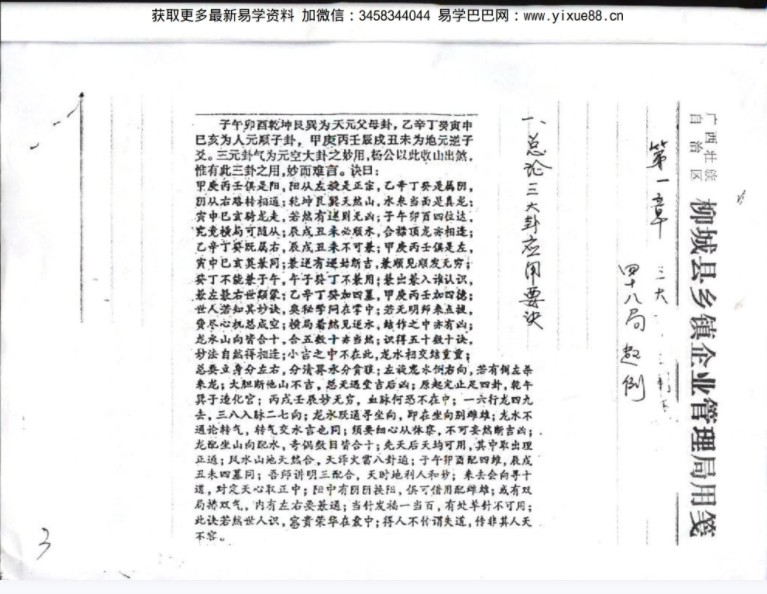 获取更多最新易学资料 加微信：3458344044 易学巴巴网：www.yixue88.cn
广西壮族
自治区
柳城县乡镇企业管理局用笺
第一章 三大
四十八局起例
一、总论三大卦应用要诀
子午卯酉乾坤艮巽为天元父母卦，乙辛丁癸寅申
巳亥为人元顺子卦，甲庚丙壬辰戌丑未为地元逆子
爻。三元卦气为元空大卦之妙用，杨公以此收山出煞，
惟有此三卦之用，妙而难言。诀曰：
甲庚丙壬俱是阳，阳从左旋是正宗，乙辛丁癸是属阴，
阴从右路转相通；乾坤艮巽天然山，水来当面是真龙；
寅申巳亥骑龙走，若然有逆则无凶；子午卯酉四位达，
究竟横局可随从；辰戌丑未必顺水，合襟顶龙亦相连；
乙辛丁癸既属右，辰戌丑未不可兼；甲庚丙壬俱是左，
寅申巳亥莫兼同；兼逆有逆始断吉，兼顺见顺发无穷；
癸丁不能兼子午，午子癸丁不兼用；兼出兼入谁认识，
兼左兼右世颐蒙；乙辛丁癸加四墓，甲庚丙壬加四德；
世人若知其妙诀，奥秘学问在掌中；若无明师来点拨，
费尽心机总成空；横局看然见逆水，结作之中亦有凶；
龙水山向皆合十，合五数十亦当然；识得五十数十诀，
妙法自然得相连；小吉之中不在此，龙水相交结重重；
总要立身分左右，分清零水分贪狼；左旋忽水倒右向，若有倒左杀
来龙；大胆断他山不吉，总无遇堂吉后凶；原起定止足四卦，乾午
巽子造化宫；丙戌壬辰妙无穷，血脉何愁不在中；一六行龙四九
去，三八入脉二七向；龙水既通寻坐向，即在坐向别雌雄；龙水不
通论转气，转气交水吉也同；须要细心从体察，不可妄然断吉凶；
龙配坐山向配水，奇偶数目皆合十；先天后天均可用，其中取出理
正通；风水山地天然合，天泽火雷八卦通；子午卯酉配四维，辰戌
丑未四墓同；吾师讲明三配合，天时地利人和妙；来去会向寻十
道，对定天心取正中；阳中有阴阴换阳，俱可借用配雌雄；或有双
局转双气，内有左右要兼通；当什发福一当百，有处草针不可用；
此诀若然世人识，富贵荣华在袁中；得人不传谓失道，传非其人天
不容。
3